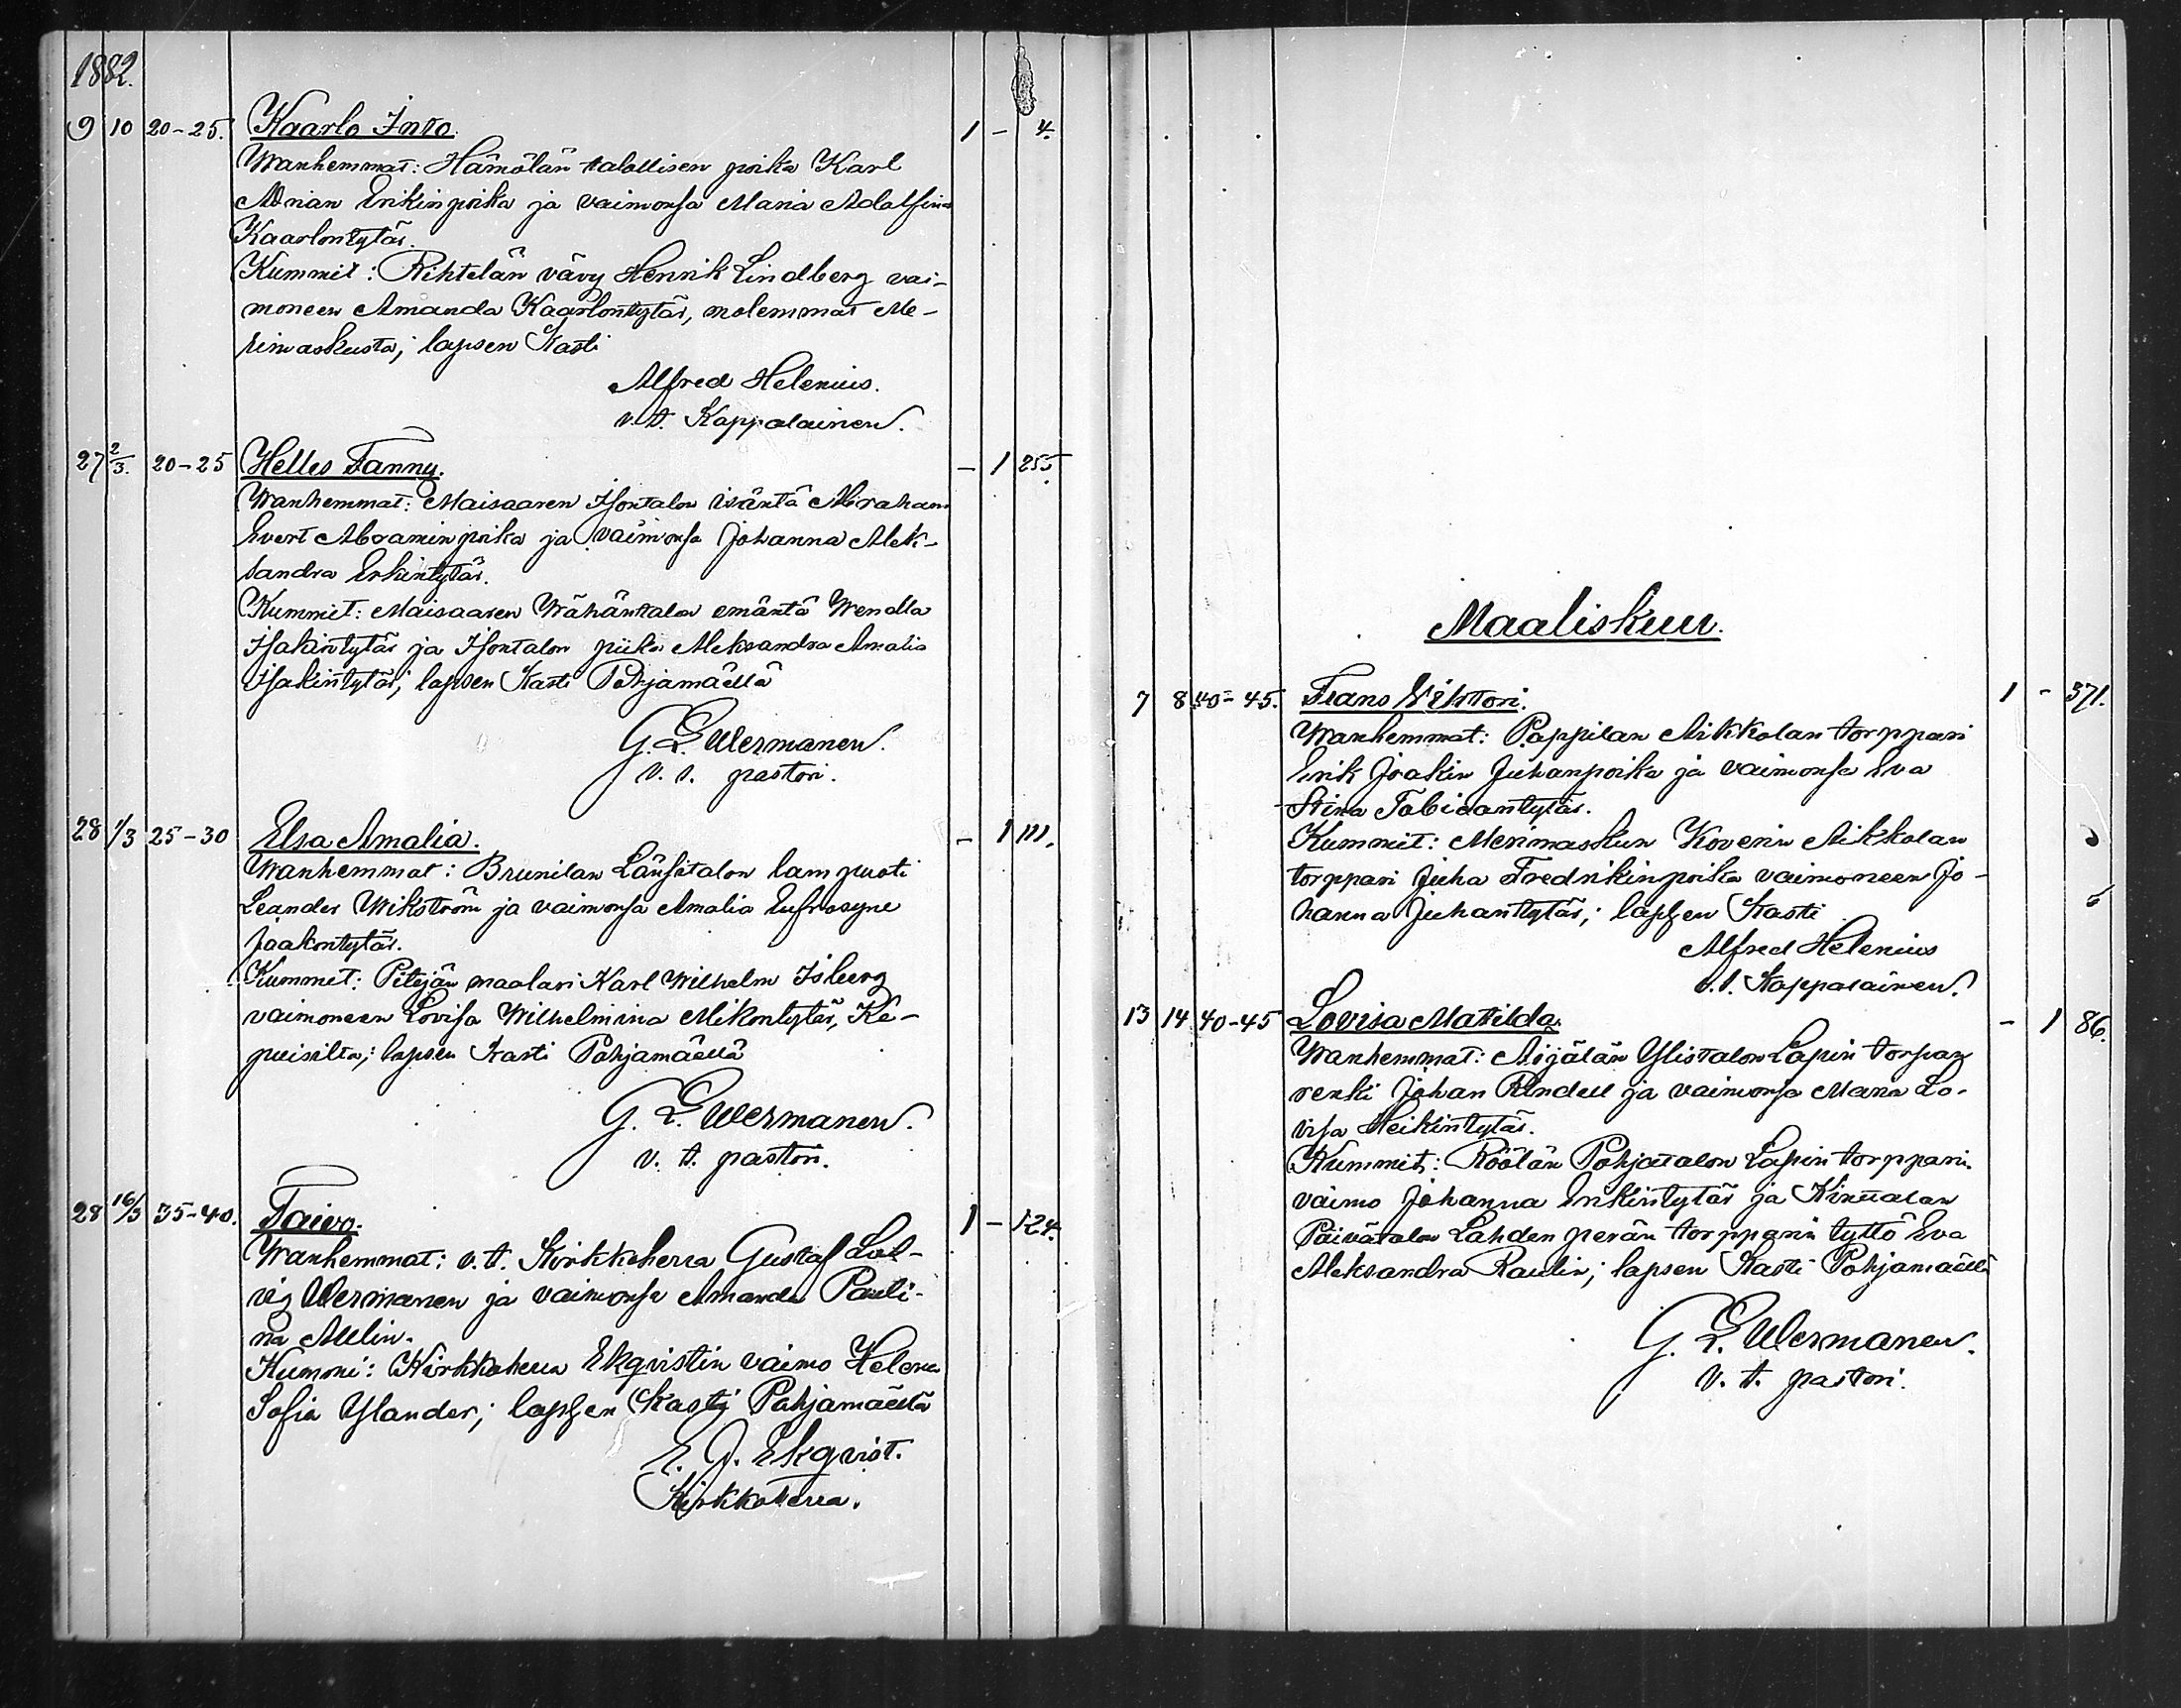 1882.
9 10 20-25. Kaarlo Into. 1 - 4.
Wanhemmat: Hämölän talollisen poika Karl
Adrian Erikinpoika ja vaimonsa Maria Adolfina
Kaarlontytär.
Kummit: Rihtelän vävy Henrik Lindberg vai-
moneen Amanda Kaarlontytär, molemmat Me-
rimaskusta; lapsen kasti
Alfred Helenius.
v.t. Kappalainen.
27 2/3. 20-25 Helles Fanny. - 1 255.
Wanhemmat: Maisaaren Isontalon isäntä Abraham
Evert Abraminpoika ja vaimonsa Johanna Alek-
sandra Erkintytär.
Kummit: Maisaaren Wähäntalon emäntä Wendla
Isakintytär ja Isontalon piika Aleksandra Amalia
Isakintytär; lapsen kasti Pohjamäellä
G. L. Wermanen.
v. t. pastori.
28 1/3 25-30 Elsa Amalia. - 1 111.
Wanhemmat: Brunilan Länsitalon lampuoti
Leander Wikström ja vaimonsa Amalia Eufrosyne
Jaakontytär.
Kummit: Pitäjän maalari Karl Wilhelm Isberg
vaimoneen Lovisa Wilhelmina Mikontytär,
lapsen kasti Pohjamäellä
G. L. Wermanen.
v. t. pastori.
28 16/3 35-40. Taivo. 1 - 124.
Wanhemmat: v. t. Kirkkoherra Gustaf Lud-
vig Wermanen ja vaimonsa Amanda Pauli-
na
Kummi: Kirkkoherra Ekqvistin vaimo Helena
Sofia Ylander; lapsen kasti Pohjamäellä
E. J. Ekqvist.
Kirkkoherra.
Maaliskuu.
7 8 40-45. Frans Vihtori. 1 - 371.
Wanhemmat: Pappilan Aikkolan torppari
Erik Joakin Juhanpoika ja vaimonsa Eva
Stina Tobiaantytär.
Kummit: Merimaskun Koverin Aikkolan
torppari Juha Fredrikinpoika vaimoneen Jo-
hanna Juhantytär; lapsen kasti
Alfred Helenius
v.t. Kappalainen.
13 14 40-45 Lovisa Matilda. - 1 86.
Wanhemmat: Äijälän Ylistalon Lapin torpan
renki Johan Rindell ja vaimonsa Maria Lo-
visa Heikintytär.
Kummit: Röölän Pohjatalon Lapin torpparin
vaimo Johanna Erikintytär ja
Päivätalon Lahdenperän torpparin tyttö Eva
Aleksandra Raulin; lapsen kasti Pohjamäellä
G. L. Wermanen.
v. t. pastori.